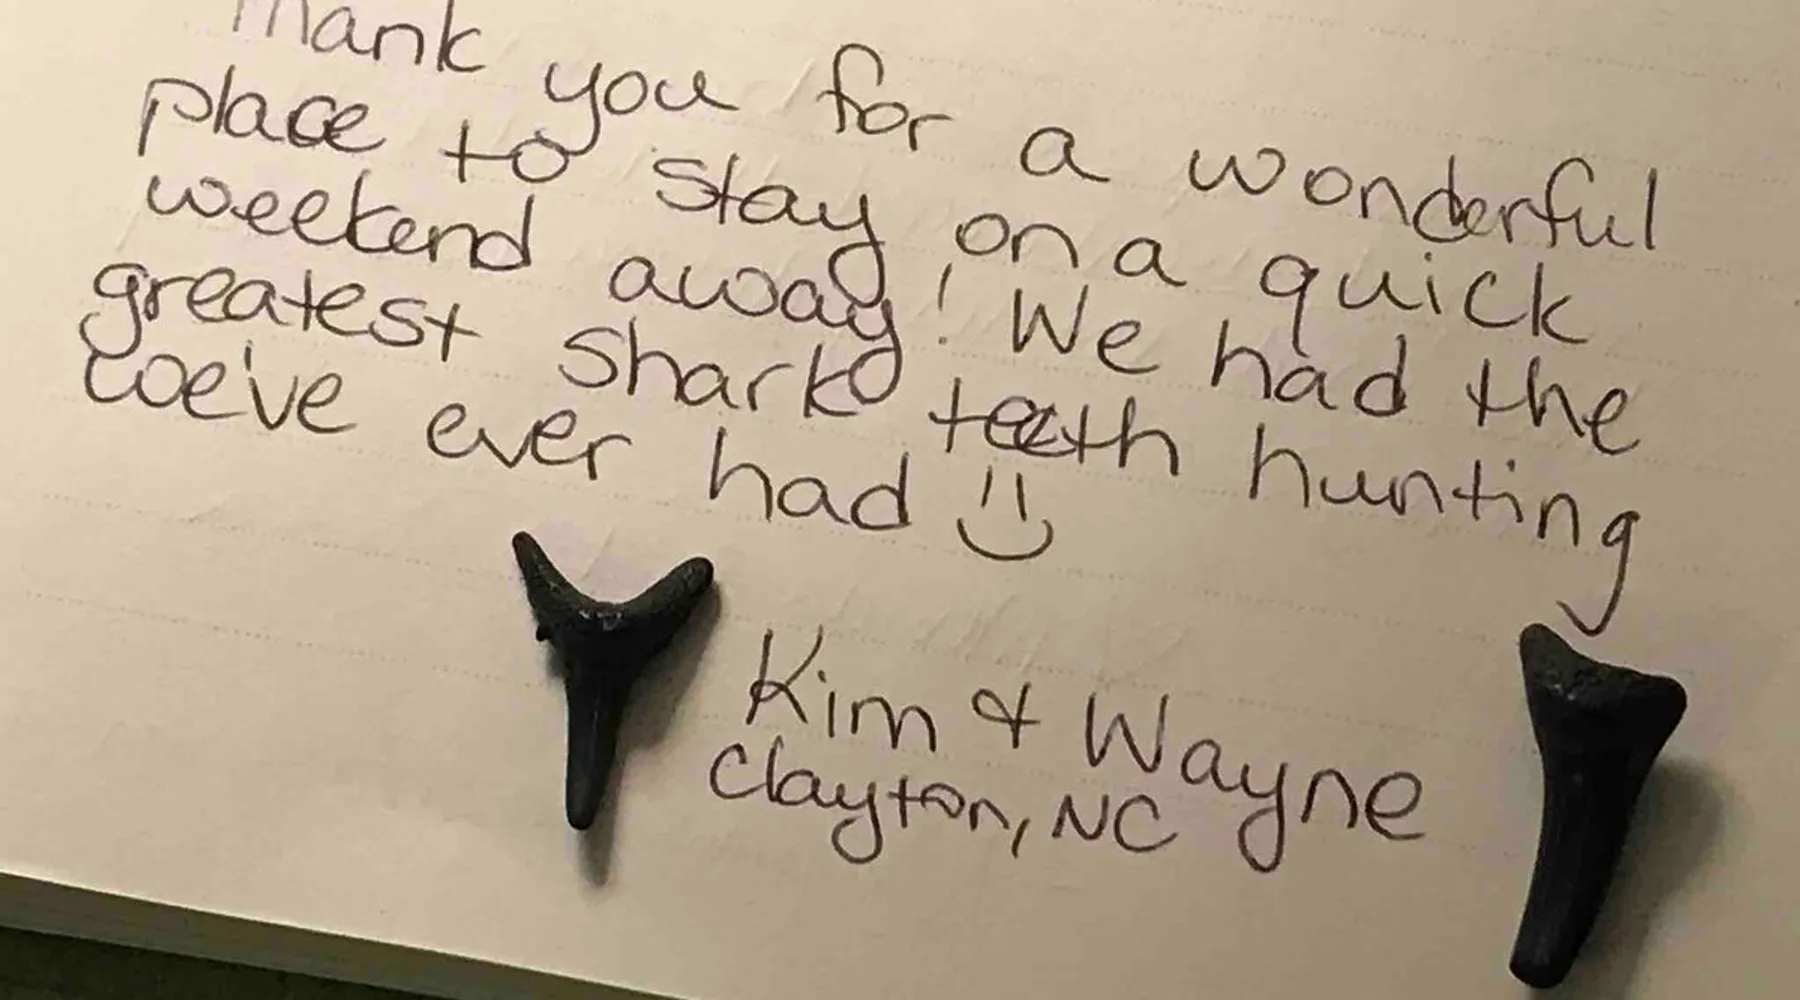 Thank you for a wonderful
place to stay on a quick
weekend away! We had the
greatest shark teeth hunting
we've ever had
Kim & Wayne
Clayton, NC